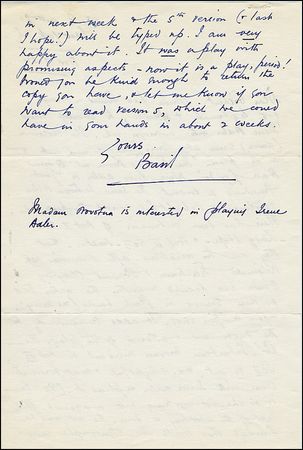 in next week & the 5th version (& last
I hope!) will be typed up. I am very
happy about it. It was a play with
promising aspects - now it is a play, period!
Would you be kind enough to return the
copy you have, & let me know if you
want to read version 5, which we could
have in your hands in about 2 weeks.
Yours.
Basil
Madam Novotna is interested in playing Irene
Adler.